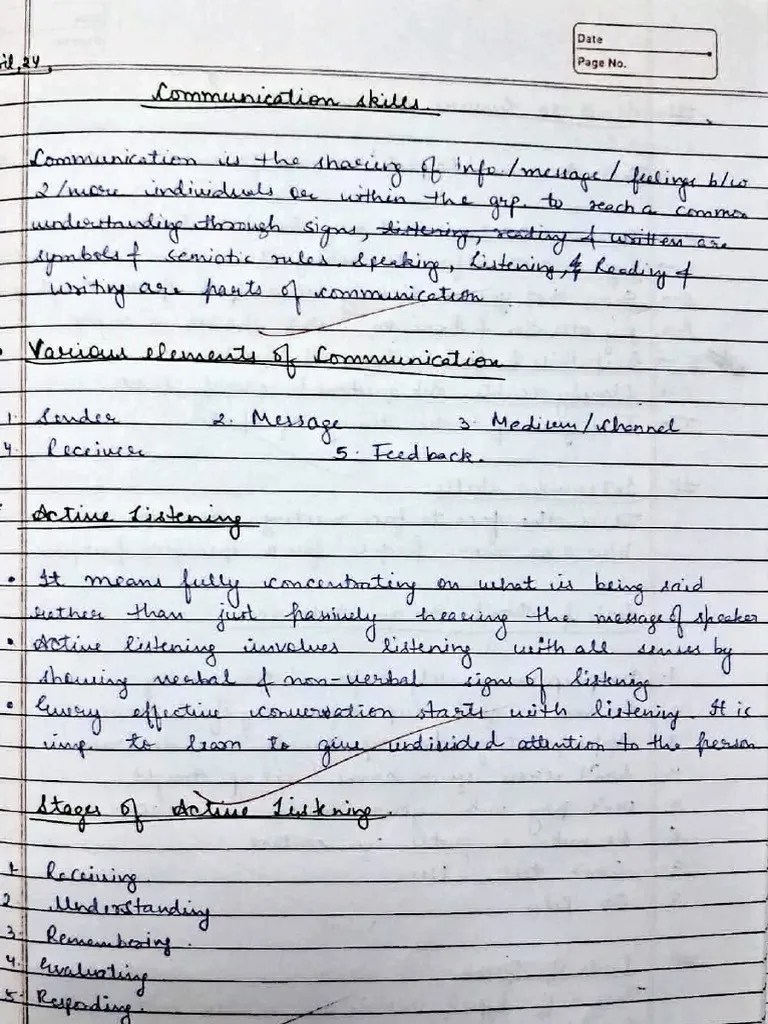 Date
Page No.
, 24,
Communication skills.
Communication is the sharing of info/message/feelings b/w
2/more individuals or within the grp. to reach a common
understanding through signs, listening, reading & written are
symbols & semiotic rules. Speaking, Listening, & Reading &
writing are parts of communication
Various elements of Communication
1. Sender 2. Message 3. Medium/channel
4. Receiver 5. Feedback.
Active Listening
• It means fully concentrating on what is being said
rather than just passively hearing the message of speaker
• Active listening involves listening with all senses by
showing verbal & non-verbal signs of listening
• Every effective conversation starts with listening. It is
imp. to learn to give undivided attention to the person
Stages of Active Listening
1. Receiving
2. Understanding
3. Remembering.
4. Evaluating
5. Responding.